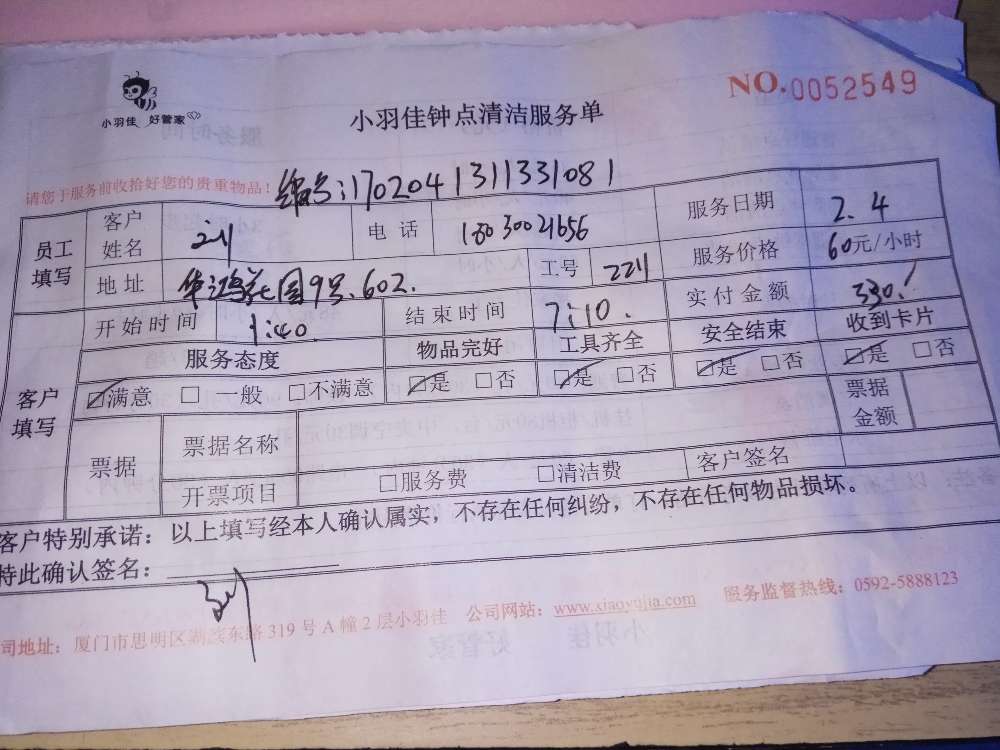 小羽佳 好管家
小羽佳钟点清洁服务单
NO.0052549
请您于服务前收拾好您的贵重物品!
编号:170204131133 1081
员工填写 客户姓名 电话 18030021656 服务日期 2.4
地址 华鸿花园9号.602. 工号 2211 服务价格 60元/小时
客户填写 开始时间 1:40. 结束时间 7:10. 实付金额 330.
服务态度 物品完好 工具齐全 安全结束 收到卡片
☑满意 □一般 □不满意 ☑是 □否 ☑是 □否 ☑是 □否 ☑是 □否
票据 票据名称 票据金额
开票项目 □服务费 □清洁费 客户签名
客户特别承诺:以上填写经本人确认属实,不存在任何纠纷,不存在任何物品损坏。
特此确认签名:
司地址:厦门市思明区湖滨东路319号A幢2层小羽佳 公司网站:www.xiaoyujia.com 服务监督热线:0592-5888123